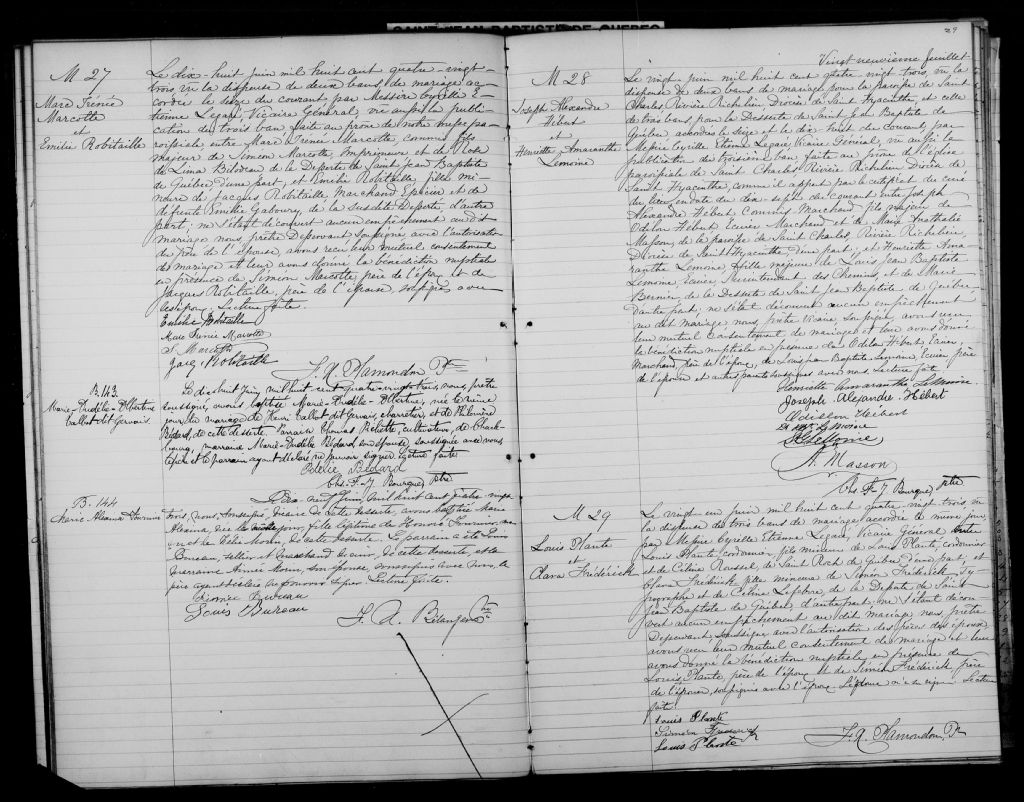 SAINT-JEAN-BAPTISTE-DE-QUEBEC
M 27
Marc Irénée
Marcotte
et
Emilie Robitaille
Le dix-huit juin mil huit cent quatre-vingt-
trois, vu la dispense de deux bans de mariage ac-
cordée le seize du courant par Messire Cyrille E-
tienne Legaré, Vicaire Général, vu aussi la publi-
cation du trois ban faite au prône de notre messe pa-
roissiale entre Marc Irénée Marcotte, commis, fils
majeur de Siméon Marcotte, Imprimeur, et de Rose
de Lima Bilodeau de la Desserte de Saint Jean Baptiste
de Québec d'une part, et Emilie Robitaille, fille mi-
neure de Jacques Robitaille, Marchand Epicier et de
défunte Emilie Gaboury, de la susdite Desserte, d'autre
part; ne s'étant découvert aucun empêchement au dit
mariage nous, prêtre Desservant soussigné avec l'autorisation
du père de l'épouse, avons reçu leur mutuel consentement
de mariage et leur avons donné la bénédiction nuptiale
en présence de Siméon Marcotte, père de l'époux et de
Jacques Robitaille, père de l'épouse, soussignés avec
les époux. Lecture faite.
Emilie Robitaille
Marc Irénée Marcotte
S. Marcotte
Jacq. Robitaille
F. X. Plamondon Ptre
B. 143
Marie-Fidélie-Albertine
Talbot dit Gervais.
Le dix huit Juin, mil huit cent quatre-vingt trois, nous, prêtre
soussigné, avons baptisé Marie-Fidélie-Albertine, née le même
jour, du mariage de Henri Talbot dit Gervais, charretier, et de Philomène
Bédard, de cette desserte. Parrain Thomas Pichette, cultivateur, de Charles-
bourg, marraine Marie-Fidélie Bédard, son épouse, soussignée avec nous.
Le père et le parrain ayant déclaré ne pouvoir signer. Lecture faite.
Bédard
Chs. F-J Bourque, Ptre
B. 144
Marie Alesina Fournier
Dix neuf Juin, mil huit cent quatre-vingt
trois, nous, soussigné, Vicaire de cette desserte, avons baptisé Marie
Alesina, née le jour, fille légitime de Honoré Fournier,
et de Odile Morin, de cette desserte. Le parrain a été Louis
Bureau, sellier et marchand de cuir, de cette desserte, et la
marraine Aimée Morin, son épouse, soussignés avec nous, le
père ayant déclaré ne pouvoir signer. Lecture faite.
Aimée Bureau
Louis Bureau
F. A. Bélanger Ptre
29
Vingt neuvième feuillet
M 28
Joseph Alexandre
Hébert
et
Henriette Amaranthe
Lemoine
Le vingt juin mil huit cent quatre vingt trois, vu la
dispense de deux bans de mariage pour la paroisse de Saint
Charles, Rivière Richelieu, Diocèse de Saint Hyacinthe, et celle
de trois bans pour la Desserte de Saint Jean Baptiste de
Québec accordées le seize et le dix-huit du courant, par
Messire Cyrille Etienne Legaré, Vicaire Général, vu aussi la
publication du troisième ban faite au prône de l'église
paroissiale de Saint Charles, Rivière Richelieu Diocèse de
Saint Hyacinthe, comme il appert par le certificat du curé
du lieu, en date du dix-sept du courant entre Joseph
Alexandre Hébert Commis-Marchand, fils majeur de
Odilon Hébert, Ecuier Marchand et de Marie Nathalie
Masson, de la paroisse de Saint Charles, Rivière Richelieu,
Diocèse de Saint-Hyacinthe, d'une part; et Henriette Ama-
ranthe Lemoine, fille majeure de Louis Jean Baptiste
Lemoine, Ecuier, Surintendant des Chemins, et de Marie
Bernier, de la Desserte de Saint Jean Baptiste de Québec
d'autre part; ne s'étant découvert aucun empêchement
au dit mariage, nous, prêtre Vicaire, soussigné, avons reçu
leur mutuel consentement de mariage et leur avons donné
la bénédiction nuptiale en présence de Odilon Hébert, Ecuier,
Marchand, père de l'époux, de Louis Jean Baptiste Lemoine, Ecuier père
de l'épouse et autres parents soussignés avec nous. Lecture faite
Henriette Amaranthe LeMoine.
Joseph Alexandre Hébert
Odilon Hébert
LeMoine
N. Masson
Chs. F-J Bourque, ptre
M 29
Louis Plante
et
Clara Frédérick
Le vingt un juin mil huit cent quatre-vingt trois, vu
la dispense de trois bans de mariage accordée le même jour,
par Messire Cyrille Etienne Legaré, Vicaire Général entre
Louis Plante, cordonnier, fils mineur de Louis Plante, cordonnier
et de Célina Roussel, de Saint Roch de Québec d'une part; et
Clara Frederick fille mineure de Siméon Frederick Ty
pographe et de Céline Lefebvre, de la Desserte de Saint
Jean Baptiste de Québec, d'autre part; ne s'étant décou-
vert aucun empêchement au dit mariage, nous, prêtre
Desservant, soussigné avec l'autorisation des pères des époux,
avons reçu leur mutuel consentement de mariage et leur
avons donné la bénédiction nuptiale en présence de
Louis Plante, père de l'époux et de Siméon Frédérick père
de l'épouse, soussignés avec l'époux. L'épouse n'a su signer. Lecture
faite.
Louis Plante
Siméon
Louis Plante
F. X. Plamondon, Ptr